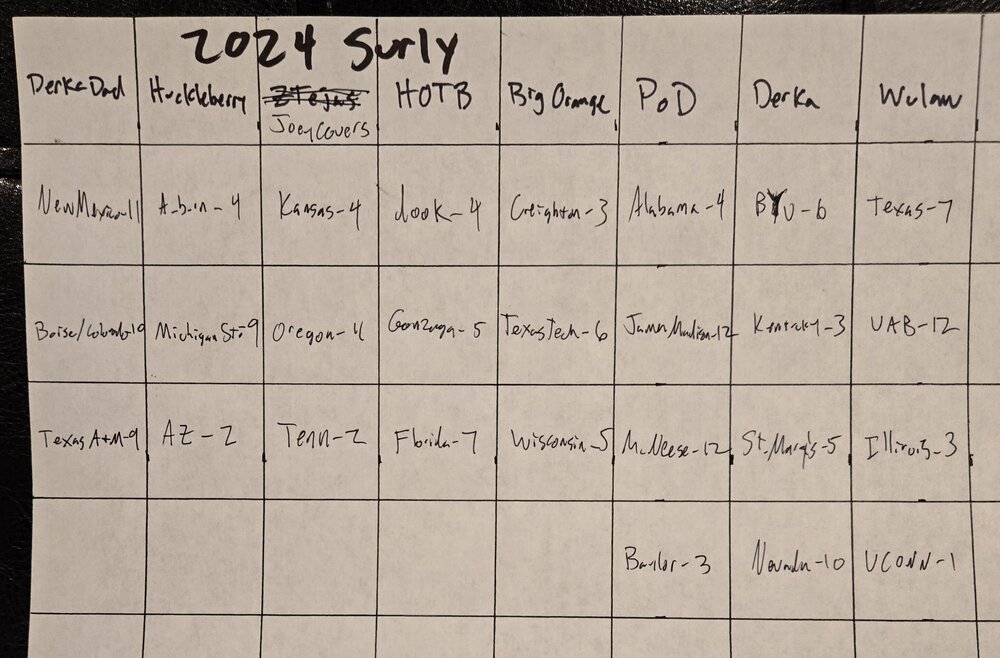 2024 Surly
Derka Dad Huckleberry ZTejas HOTB Big Orange PoD Derka Wulaw
Joey Covers
New Mexico-11 Auburn-4 Kansas-4 dook-4 Creighton-3 Alabama-4 BYU-6 Texas-7
Boise/Colorado-10 Michigan St-9 Oregon-11 Gonzaga-5 Texas Tech-6 James Madison-12 Kentucky-3 UAB-12
Texas A+M-9 AZ-2 Tenn-2 Florida-7 Wisconsin-5 McNeese-12 St. Mary's-5 Illinois-3
Baylor-3 Nevada-10 UCONN-1